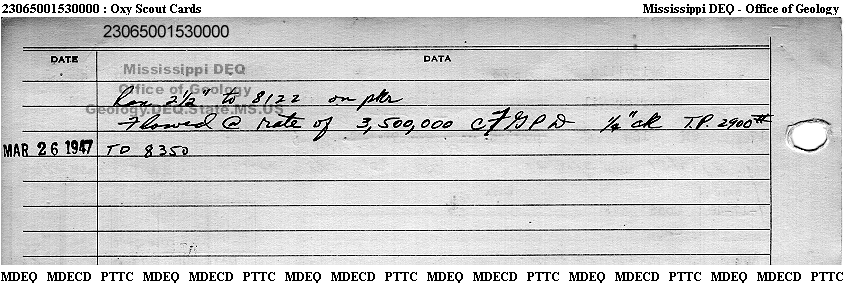 23065001530000 : Oxy Scout Cards Mississippi DEQ - Office of Geology
23065001530000
DATE DATA
Mississippi DEQ
Office of Geology
Ran 2 1/2" to 8122 on pkr
Geology.DEQ.State.MS.US
Flowed @ rate of 3,500,000 CFGPD 1/4" ck T.P. 2900#
MAR 26 1947 TD 8350
MDEQ MDECD PTTC MDEQ MDECD PTTC MDEQ MDECD PTTC MDEQ MDECD PTTC MDEQ MDECD PTTC MDEQ MDECD PTTC